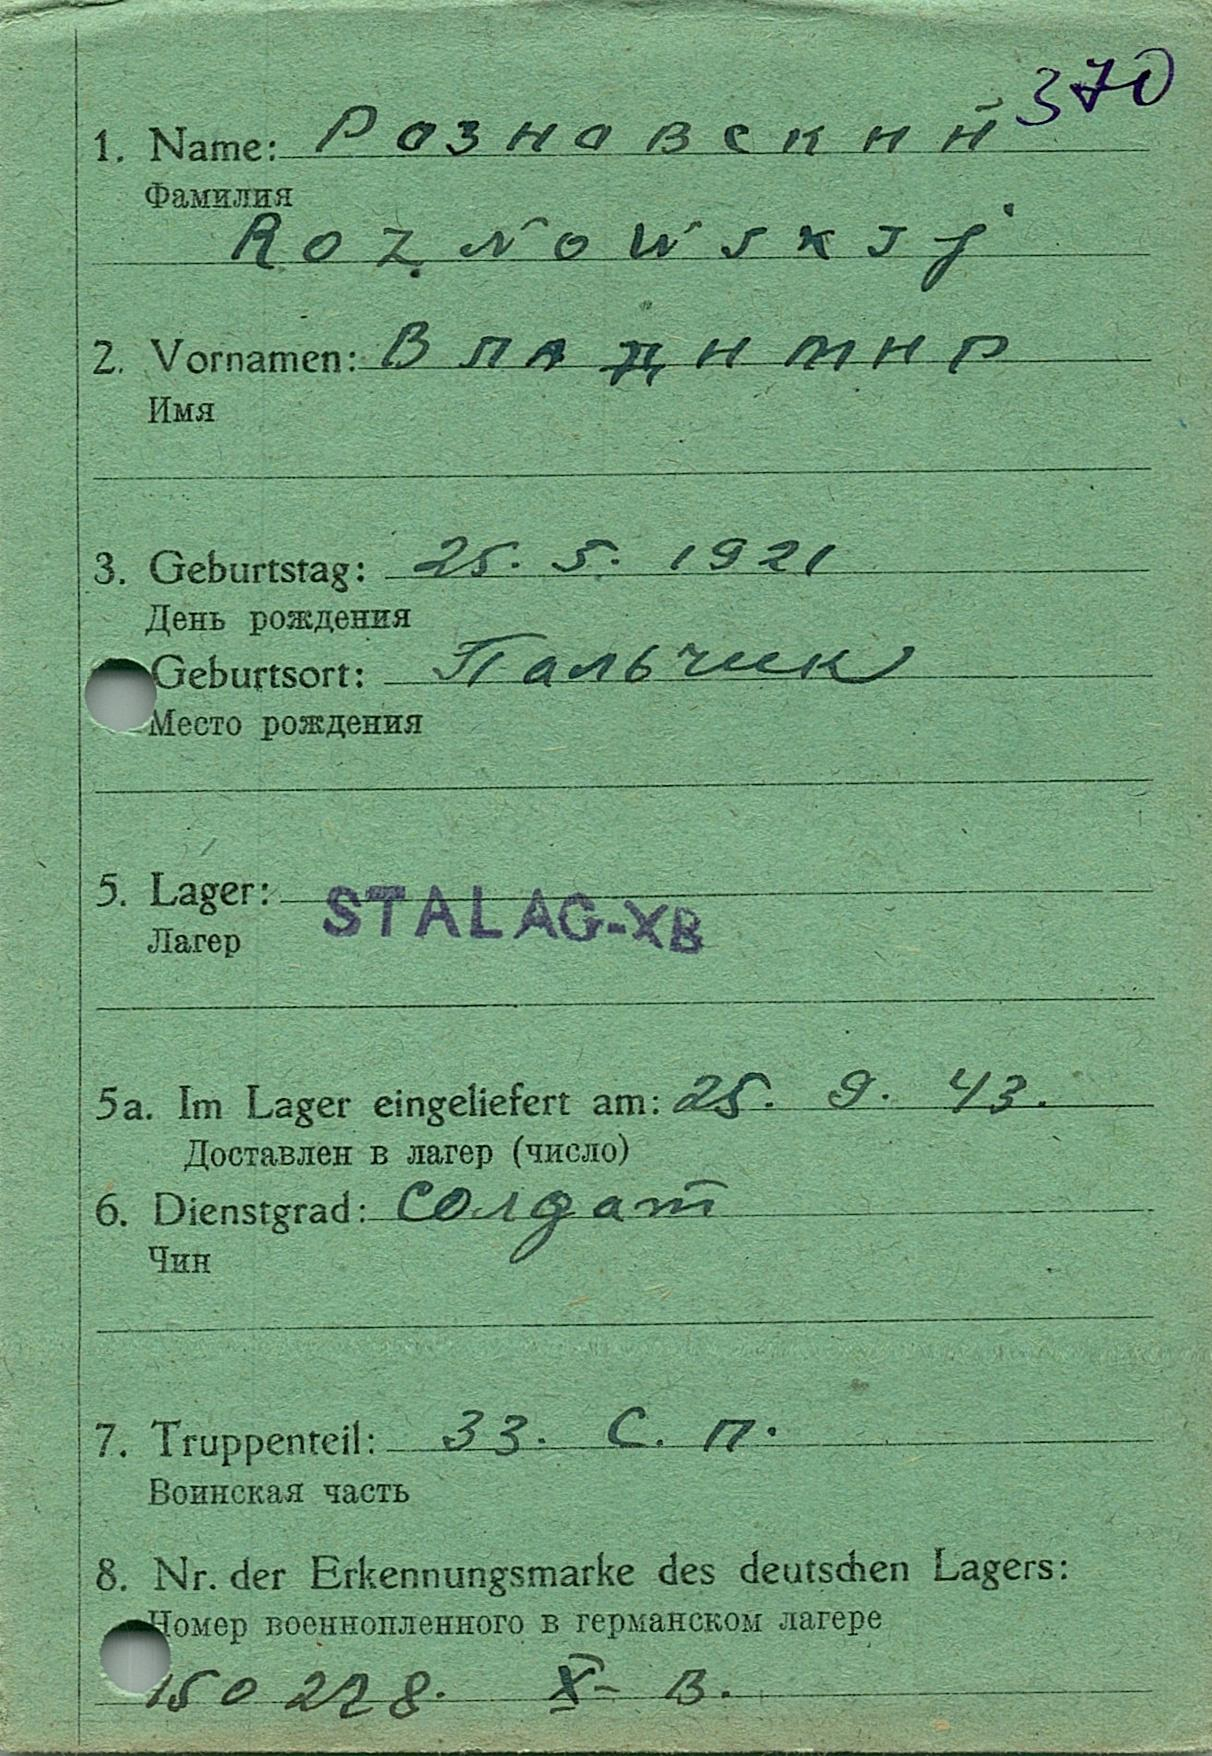 370
1. Name: Розновский
Фамилия
ROZNOWSKIJ
2. Vornamen: Владимир
Имя
3. Geburtstag: 25. 5. 1921
День рождения
Geburtsort: Пальчик
Место рождения
5. Lager: STALAG-XB
Лагер
5a. Im Lager eingeliefert am: 25. 9. 43.
Доставлен в лагер (число)
6. Dienstgrad: солдат
Чин
7. Truppenteil: 33. С. П.
Воинская часть
8. Nr. der Erkennungsmarke des deutschen Lagers:
Номер военнопленного в германском лагере
150 278. X - B.